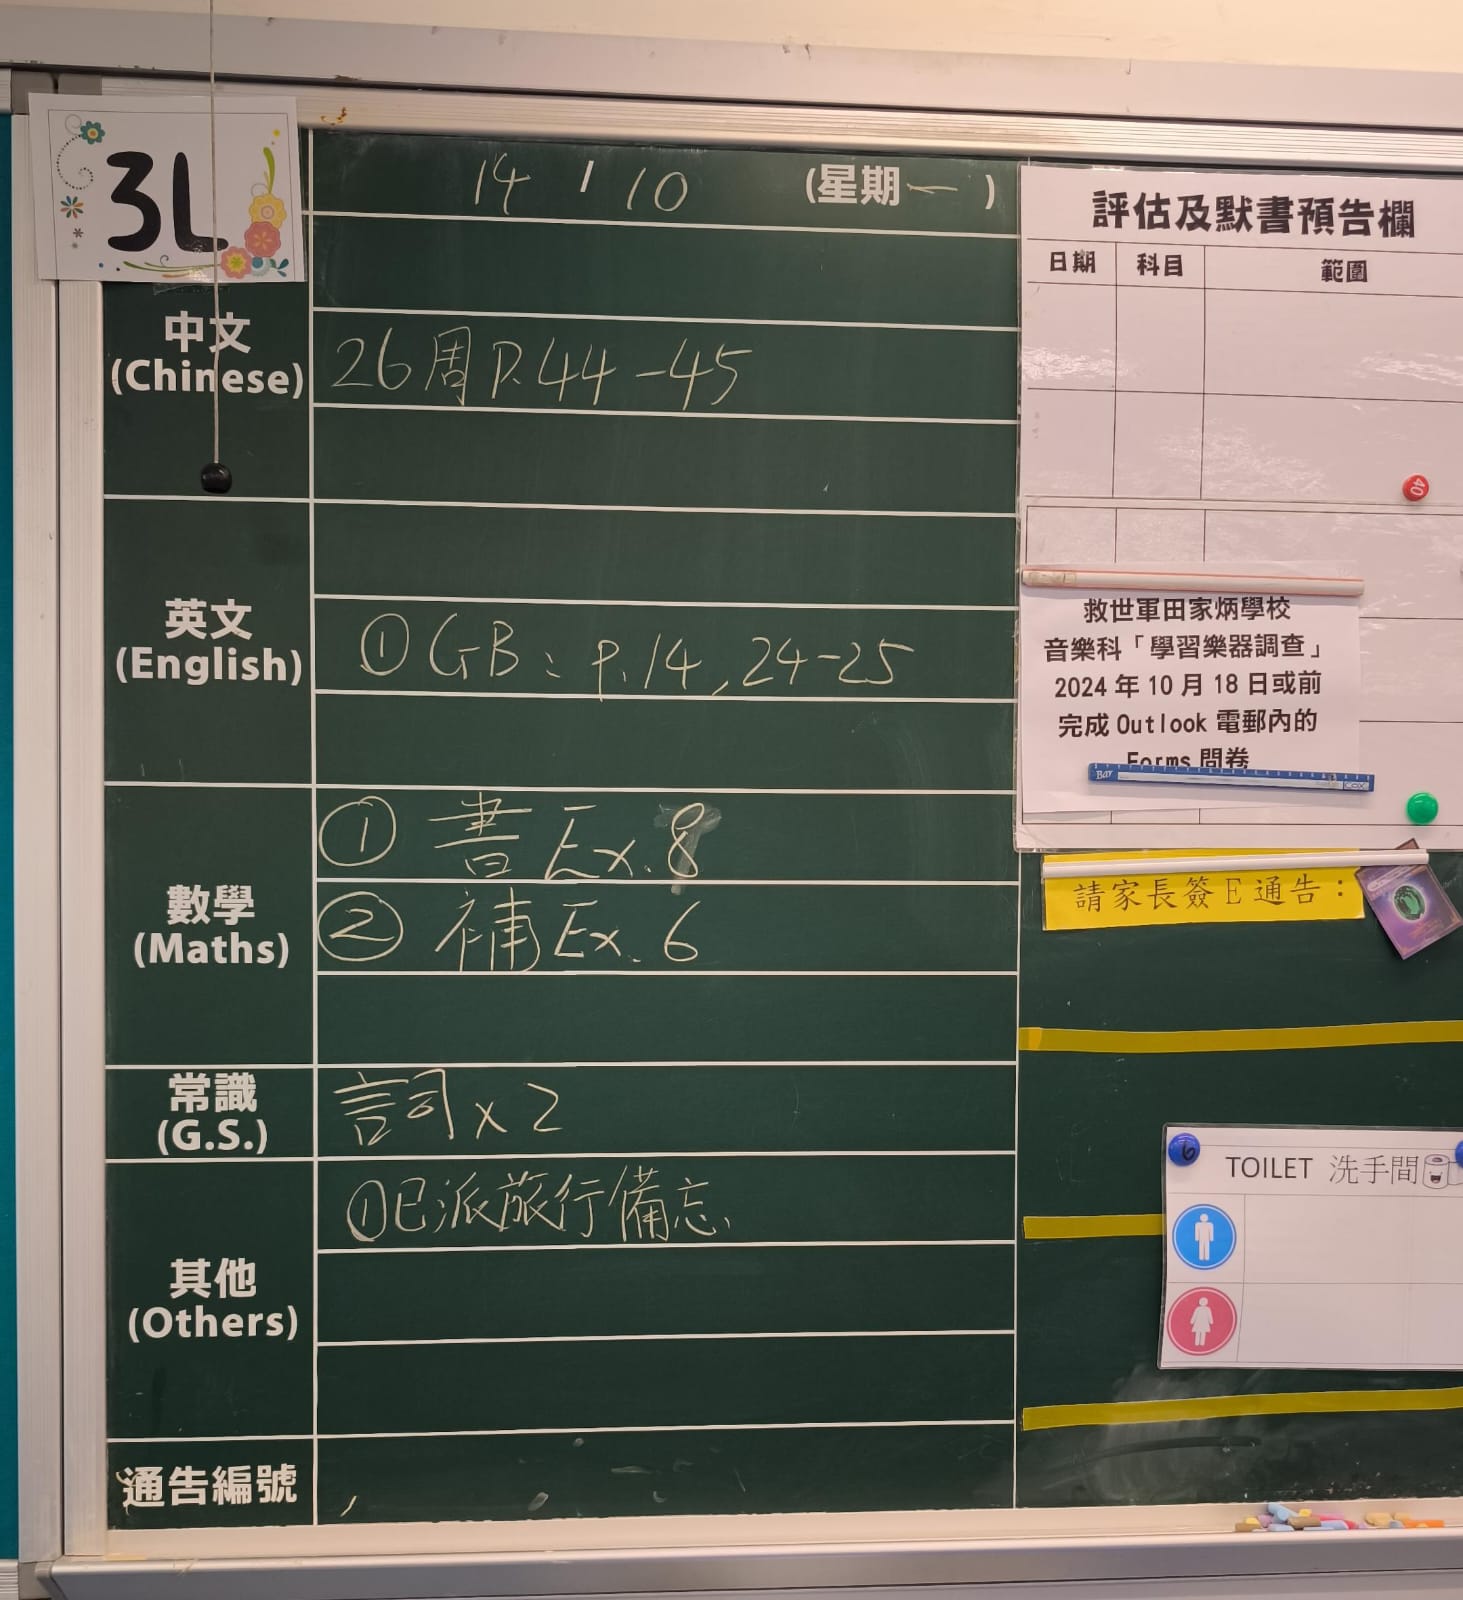 3L
14 / 10 (星期一)
中文
(Chinese)
26周P.44-45
英文
(English)
①GB: P.14, 24-25
數學
(Maths)
① 書Ex.8
② 補Ex.6
常識
(G.S.)
詞x2
其他
(Others)
①已派旅行備忘
通告編號
評估及默書預告欄
日期 科目 範圍
40
救世軍田家炳學校
音樂科「學習樂器調查」
2024年10月18日或前
完成Outlook電郵內的
Forms問卷
Bay
COX
請家長簽E通告:
6
TOILET 洗手間